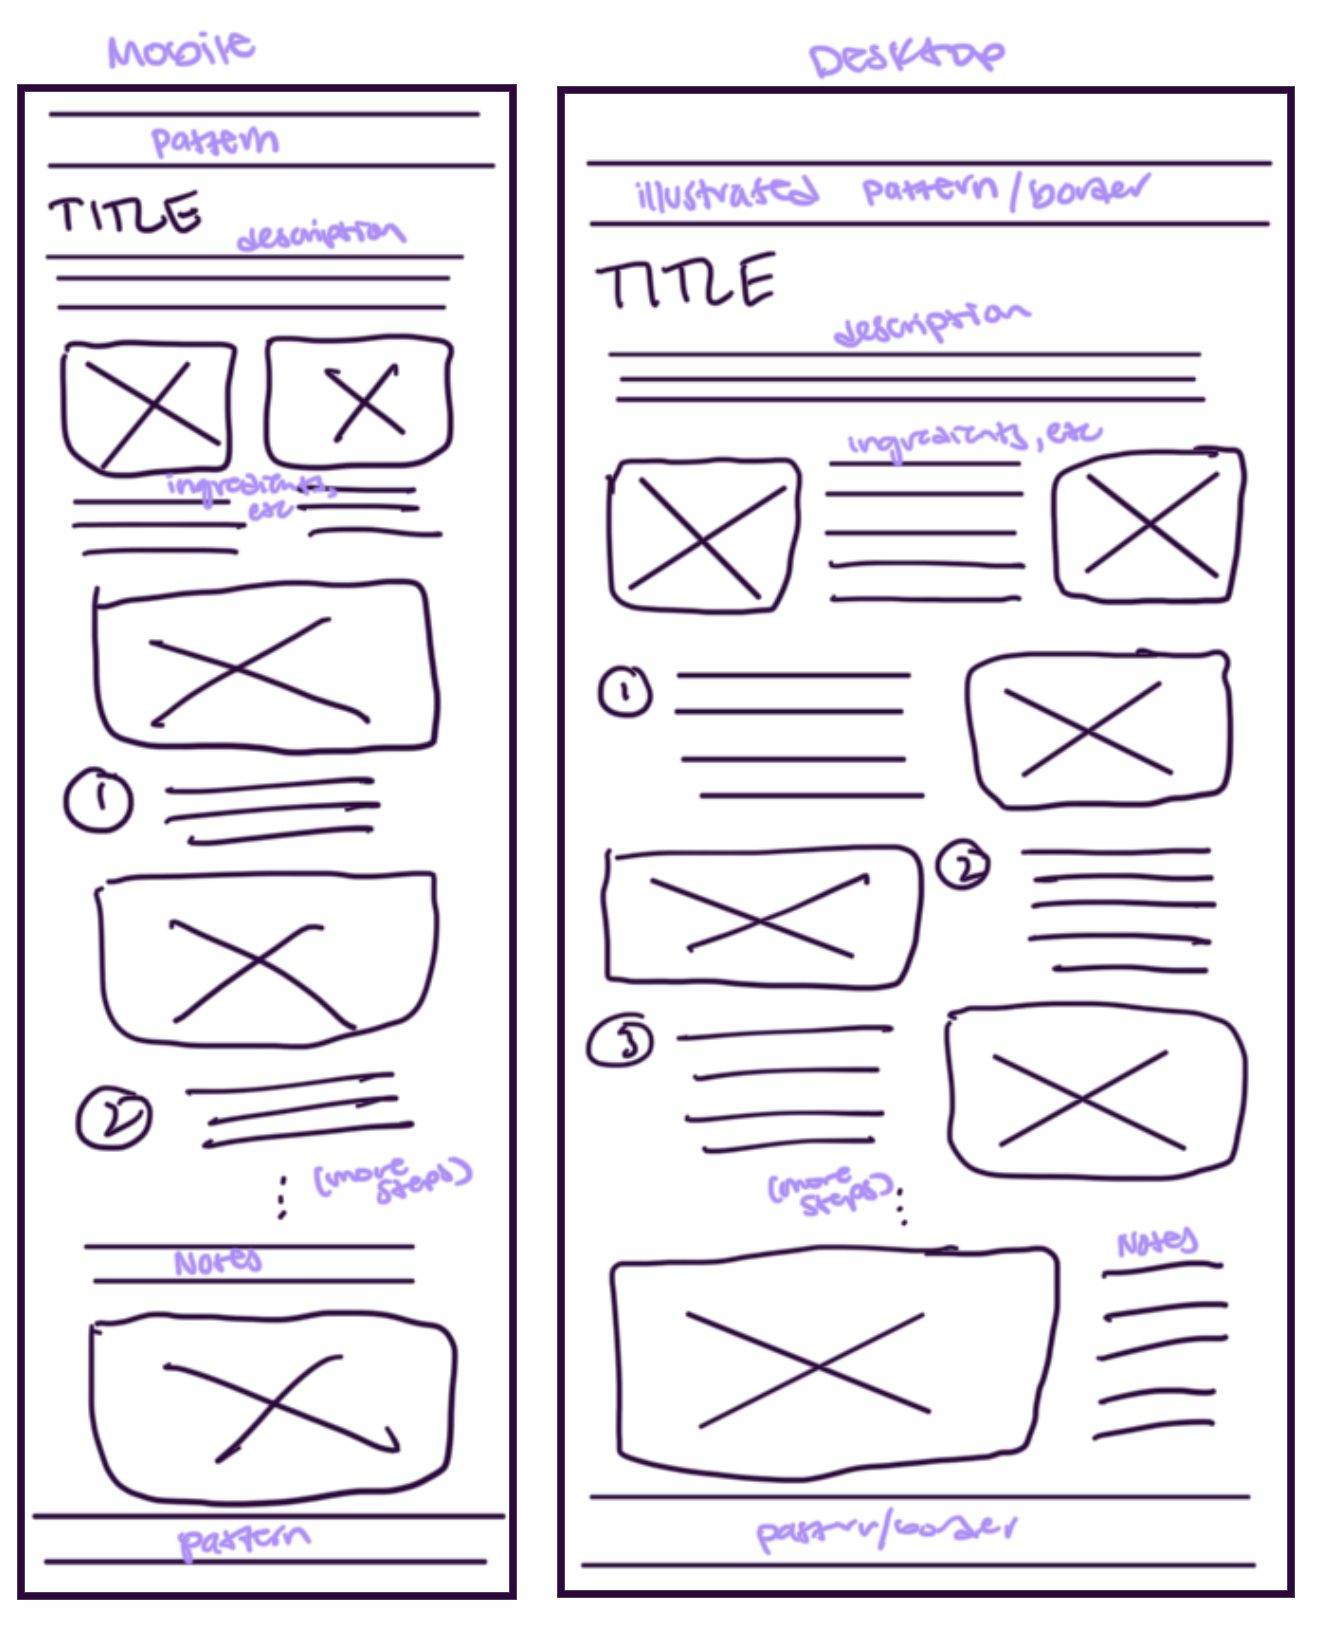 Mobile
pattern
TITLE
description
ingredients,
etc
1
2
(more
steps)
Notes
pattern
Desktop
illustrated pattern/border
TITLE
description
ingredients, etc
1
2
3
(more
steps)
Notes
pattern/border